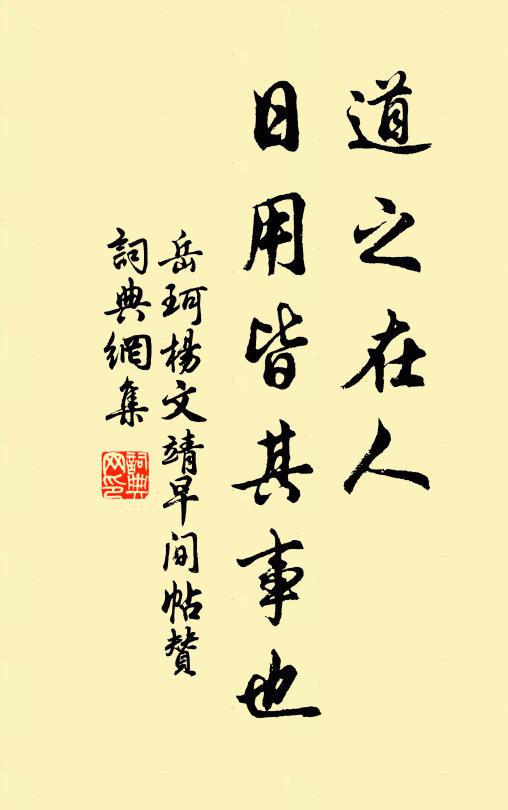 道之在人
日用皆其事也
岳珂楊文靖早間帖贊
詞典網集
詞典網印